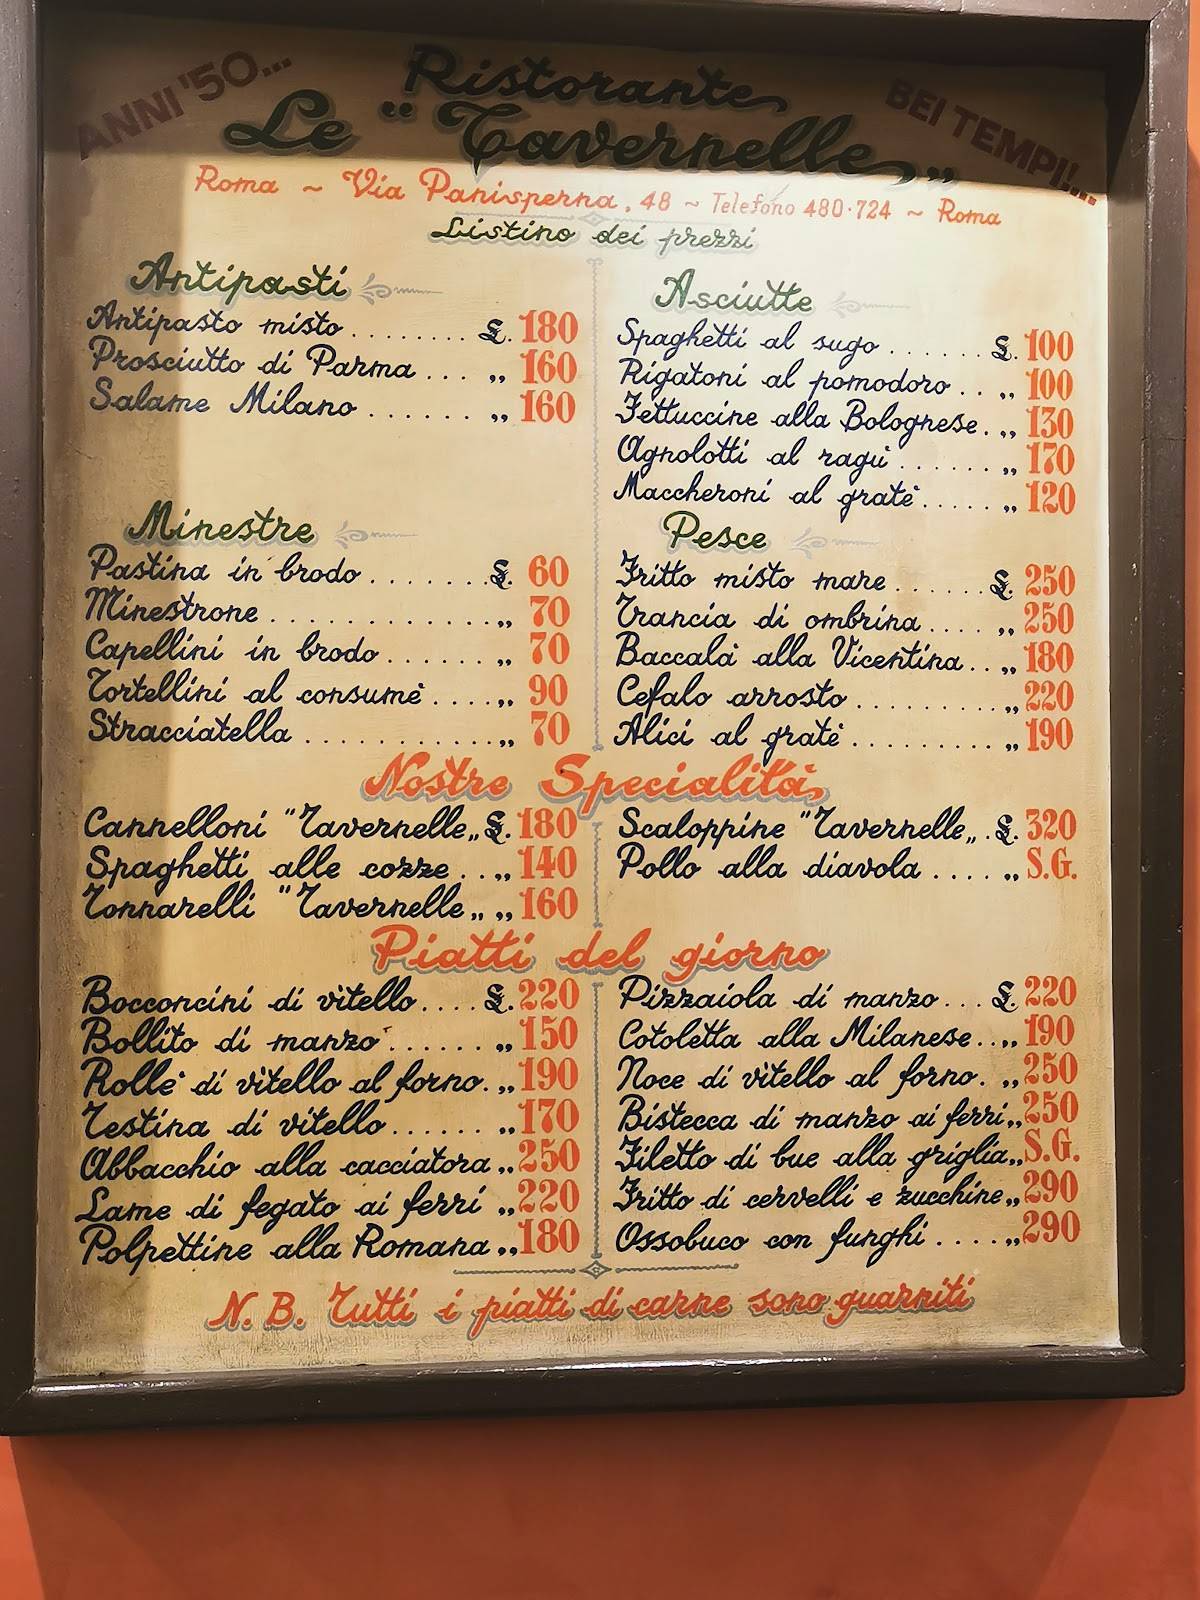 ANNI '50...
Ristorante
BEI TEMPI!...
Le "Tavernelle"
Roma ~ Via Panisperna, 48 ~ Telefono 480·724 ~ Roma
Listino dei prezzi
Antipasti
Antipasto misto ........ £. 180
Prosciutto di Parma ... „ 160
Salame Milano ....... „ 160
Minestre
Pastina in brodo ....... £. 60
Minestrone ............. „ 70
Capellini in brodo ....... „ 70
Tortellini al consumè .... „ 90
Stracciatella ............ „ 70
Asciutte
Spaghetti al sugo ...... £. 100
Rigatoni al pomodoro .. „ 100
Fettuccine alla Bolognese. „ 130
Agnolotti al ragù ....... „ 170
Maccheroni al gratè ..... „ 120
Pesce
Fritto misto mare ...... £. 250
Trancia di ombrina .... „ 250
Baccalà alla Vicentina .. „ 180
Cefalo arrosto .......... „ 220
Alici al gratè .......... „ 190
Nostre Specialità
Cannelloni "Tavernelle„ £. 180
Spaghetti alle cozze .. „ 140
Tonnarelli "Tavernelle„ „ 160
Scaloppine "Tavernelle„ . £. 320
Pollo alla diavola .... „ S.G.
Piatti del giorno
Bocconcini di vitello .... £. 220
Bollito di manzo ...... „ 150
Rollè di vitello al forno. „ 190
Testina di vitello ...... „ 170
Abbacchio alla cacciatora „ 250
Lame di fegato ai ferri „ 220
Polpettine alla Romana „ 180
Pizzaiola di manzo ... £. 220
Cotoletta alla Milanese .. „ 190
Noce di vitello al forno. „ 250
Bistecca di manzo ai ferri „ 250
Filetto di bue alla griglia „ S.G.
Fritto di cervelli e zucchine „ 290
Ossobuco con funghi .... „ 290
N.B. Tutti i piatti di carne sono guarniti